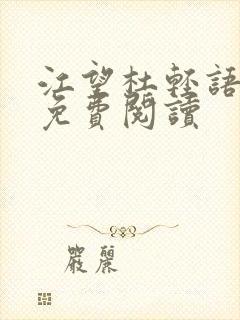 江望杜輕語
免費閱讀
嚴麗